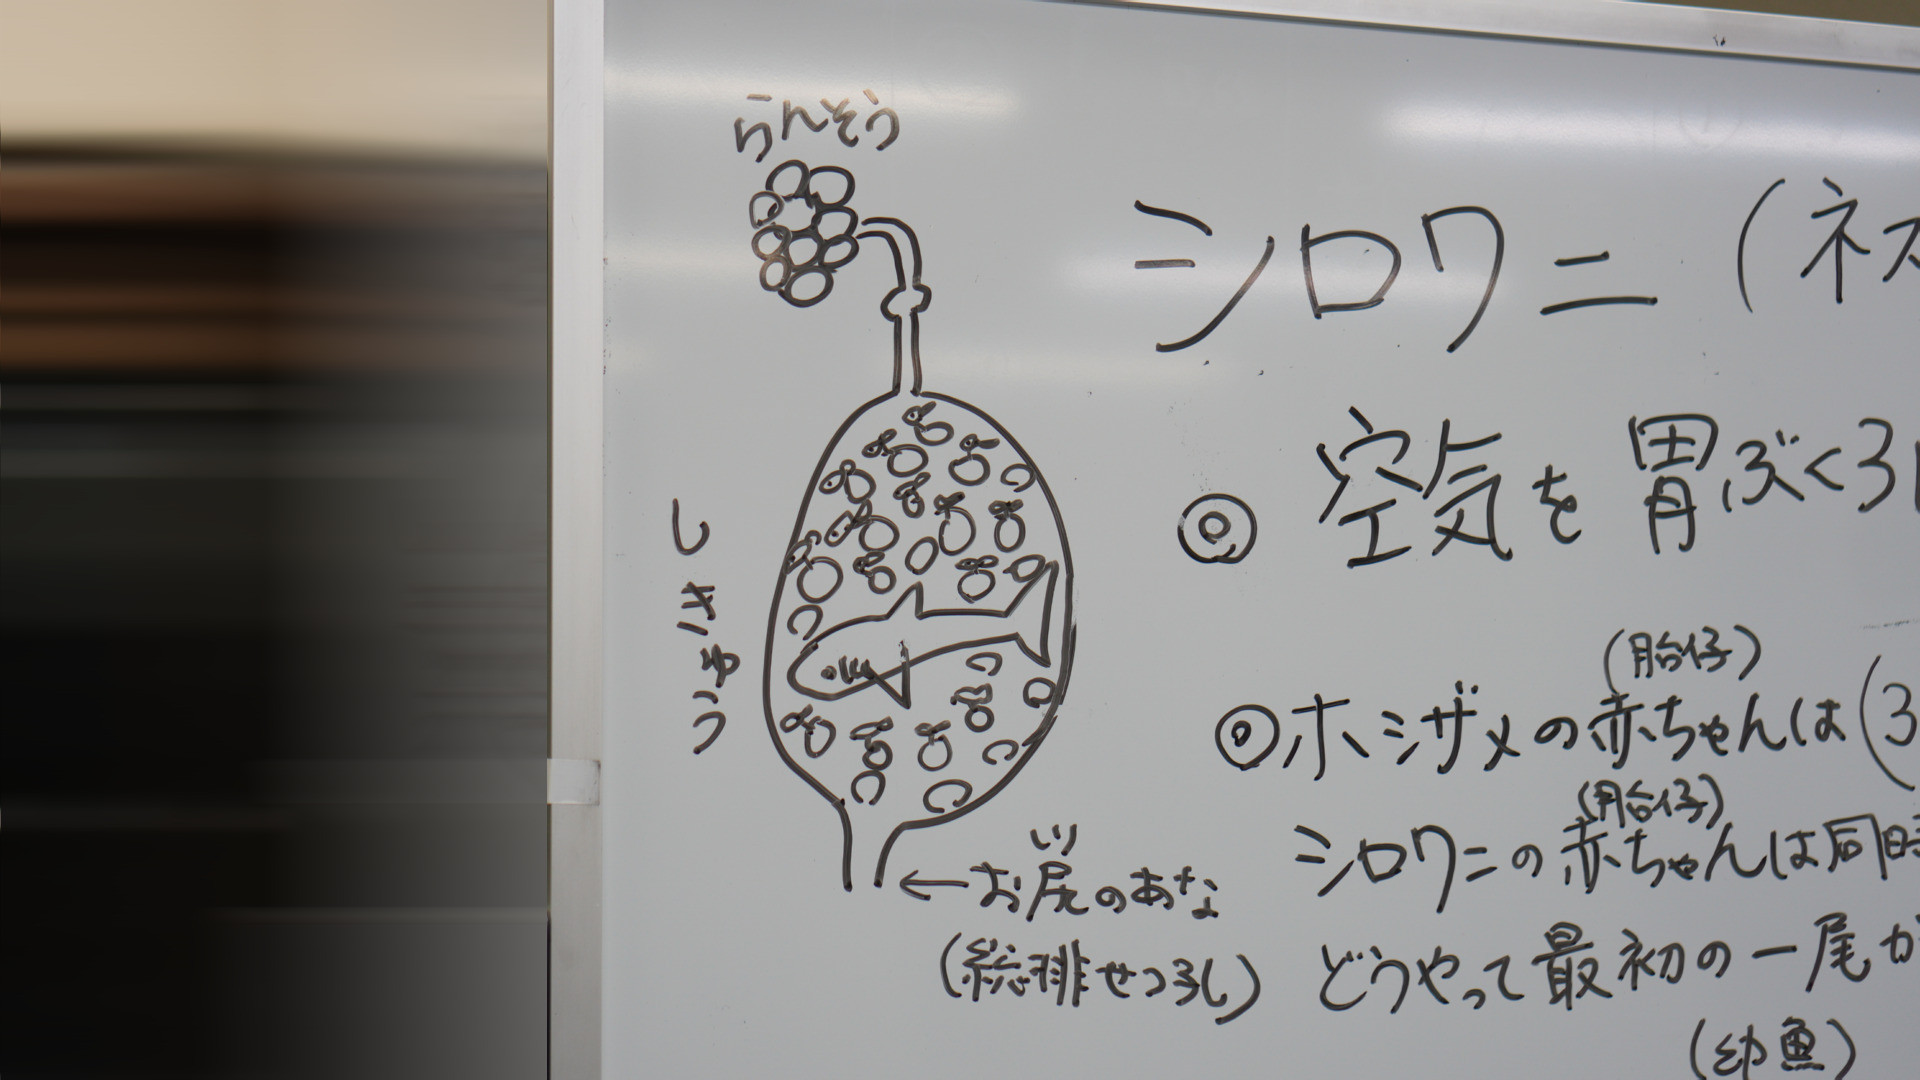 らんそう
シロワニ (ネズ
◎ 空気を胃ぶくろ
しきゅう
(胎仔)
◎ホシザメの赤ちゃんは(3
(胎仔)
シロワニの赤ちゃんは同時
しり
←お尻のあな
(総排せつろし)
どうやって最初の一尾が
(幼魚)